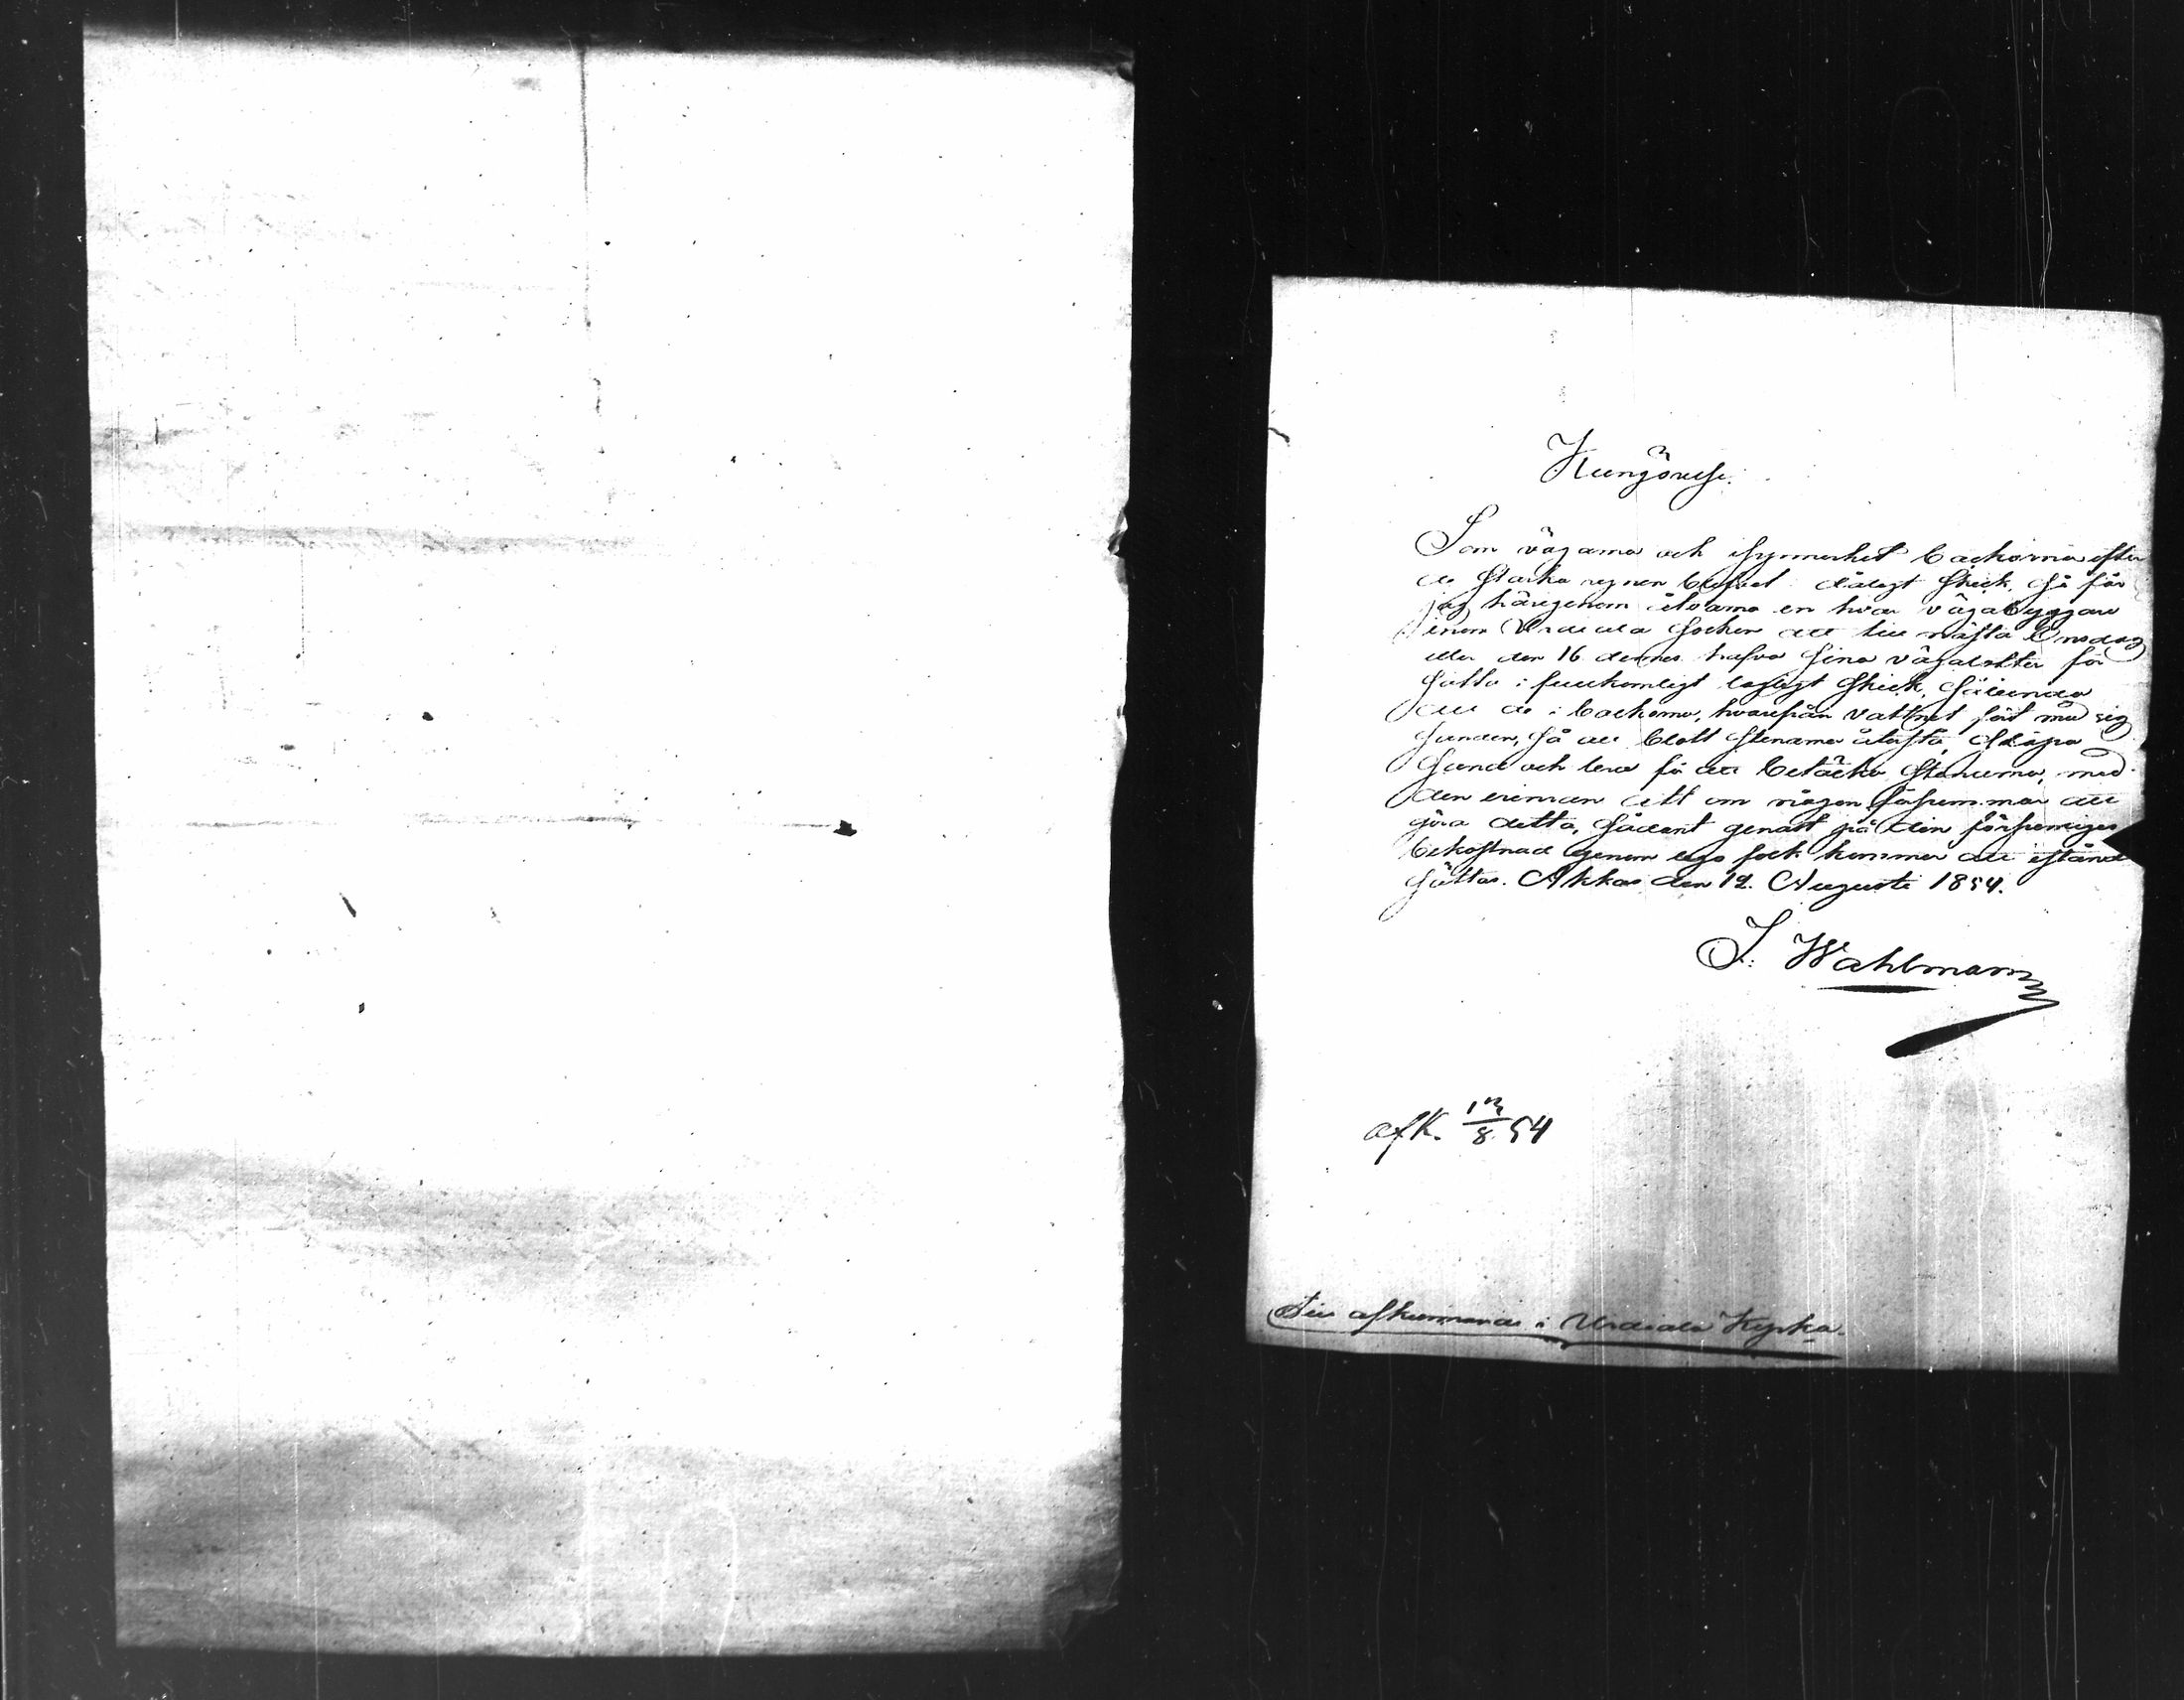 Kungörelse.
Som vägarna och isynnerhet backarna efter
de starka regnen blifvit i dåligt skick, så får
jag härigenom åtvarna en hvar vägabyggare
inom Urdiala socken att till nästa Onsdag
eller den 16 dennes hafva sina vägalotter för
satta i fullkomligt lagligt skick, sålunda
att de i backarna, hvarifrån vattnet fört med sig
sanden, så att blott stenarna återstå, släpa
sand och lera för att betäcka stenarna, med
den erinran att om någon försummar att
göra detta, sådant genast på den försumliges
bekostnad genom lego folk kommer att istånd
sättas. Akkas den 12. Augusti 1854.
J. Wahlman
afk. 13/8 54
Till afkunnande i Urdiala Kyrka.